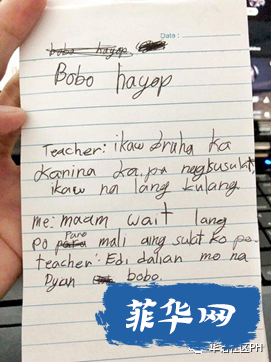 Date:
bobo hayop
Bobo hayop
Teacher: ikaw bruha ka
kanina ka pa nagsusulat,
ikaw na lang kulang.
me: maam wait lang
po pano mali aing sulat ko po.
teacher: Edi dalian mo na
Dyan bobo.
菲华网
华记社区PH